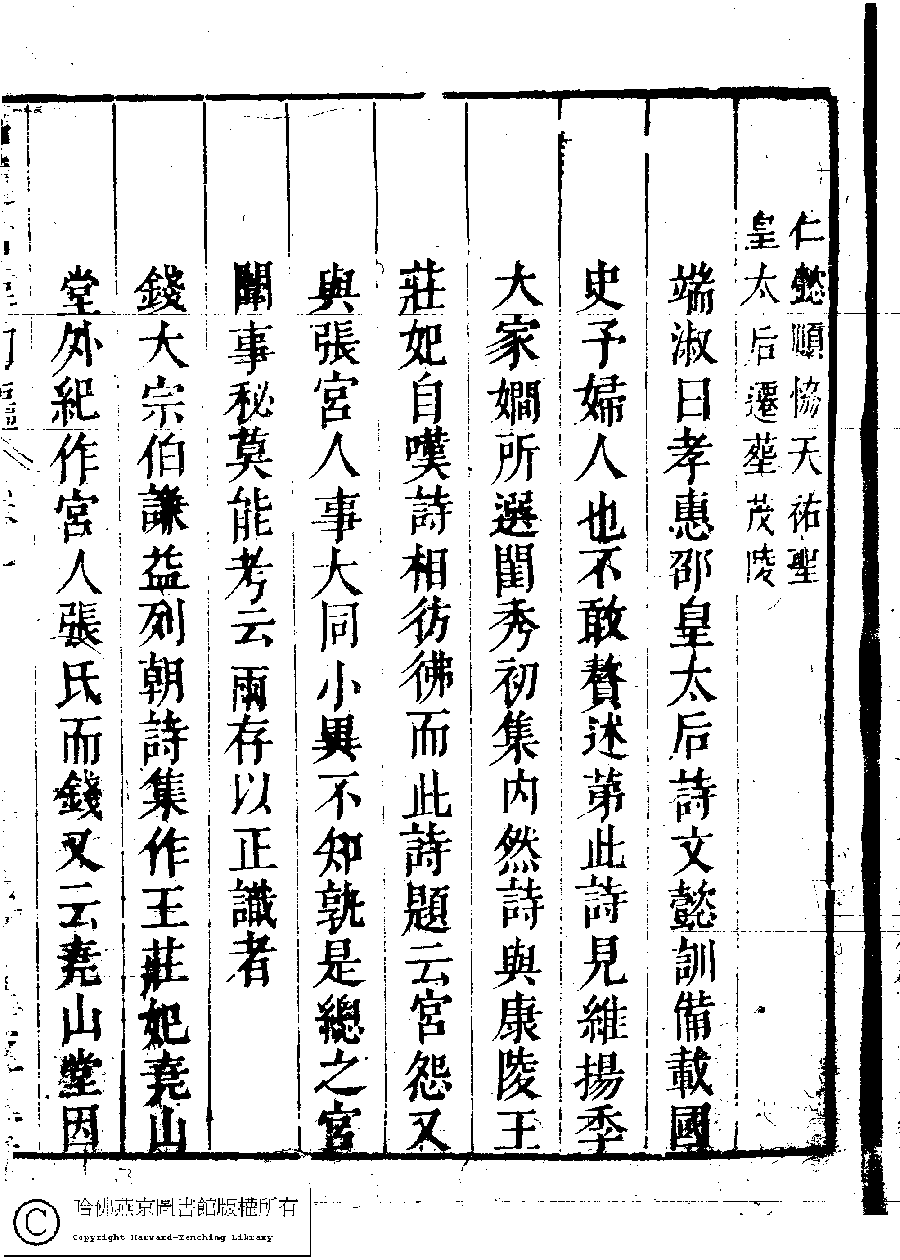 仁懿順恊天祐聖
皇太后遷塟茂陵
端淑曰孝惠邵皇太后詩文懿訓備載國
史予婦人也不敢贅述第此詩見維揚季
大家嫺所選閨秀初集內然詩與康陵王
莊妃自嘆詩相彷彿而此詩題云宮怨又
與張宮人事大同小異不知孰是總之宮
闈事秘莫能考云兩存以正識者
錢大宗伯謙益列朝詩集作王莊妃堯山
堂外紀作宮人張氏而錢又云堯山堂因
哈佛燕京圖書館版權所有
Copyright Harvard-Yenching Library